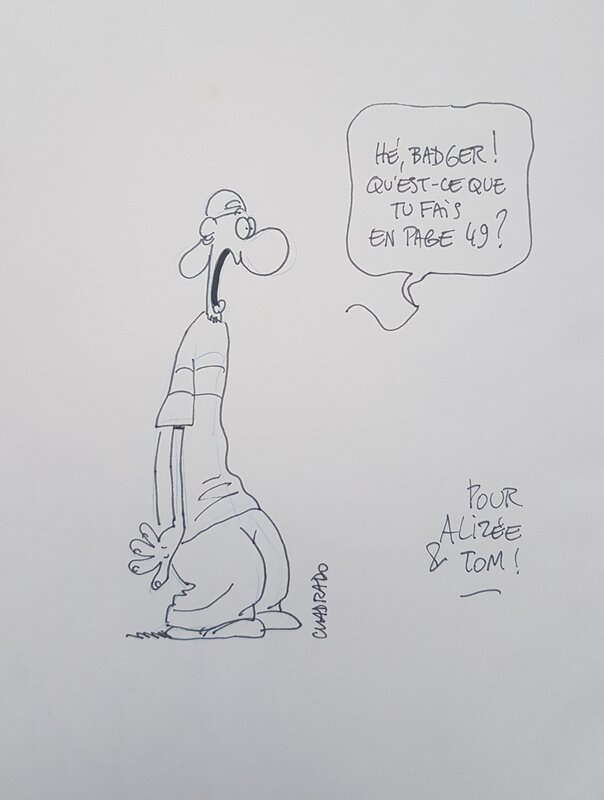 HÉ, BADGER !
QU'EST-CE QUE
TU FAIS
EN PAGE 49 ?
POUR
ALIZÉE
& TOM !
CUADRADO